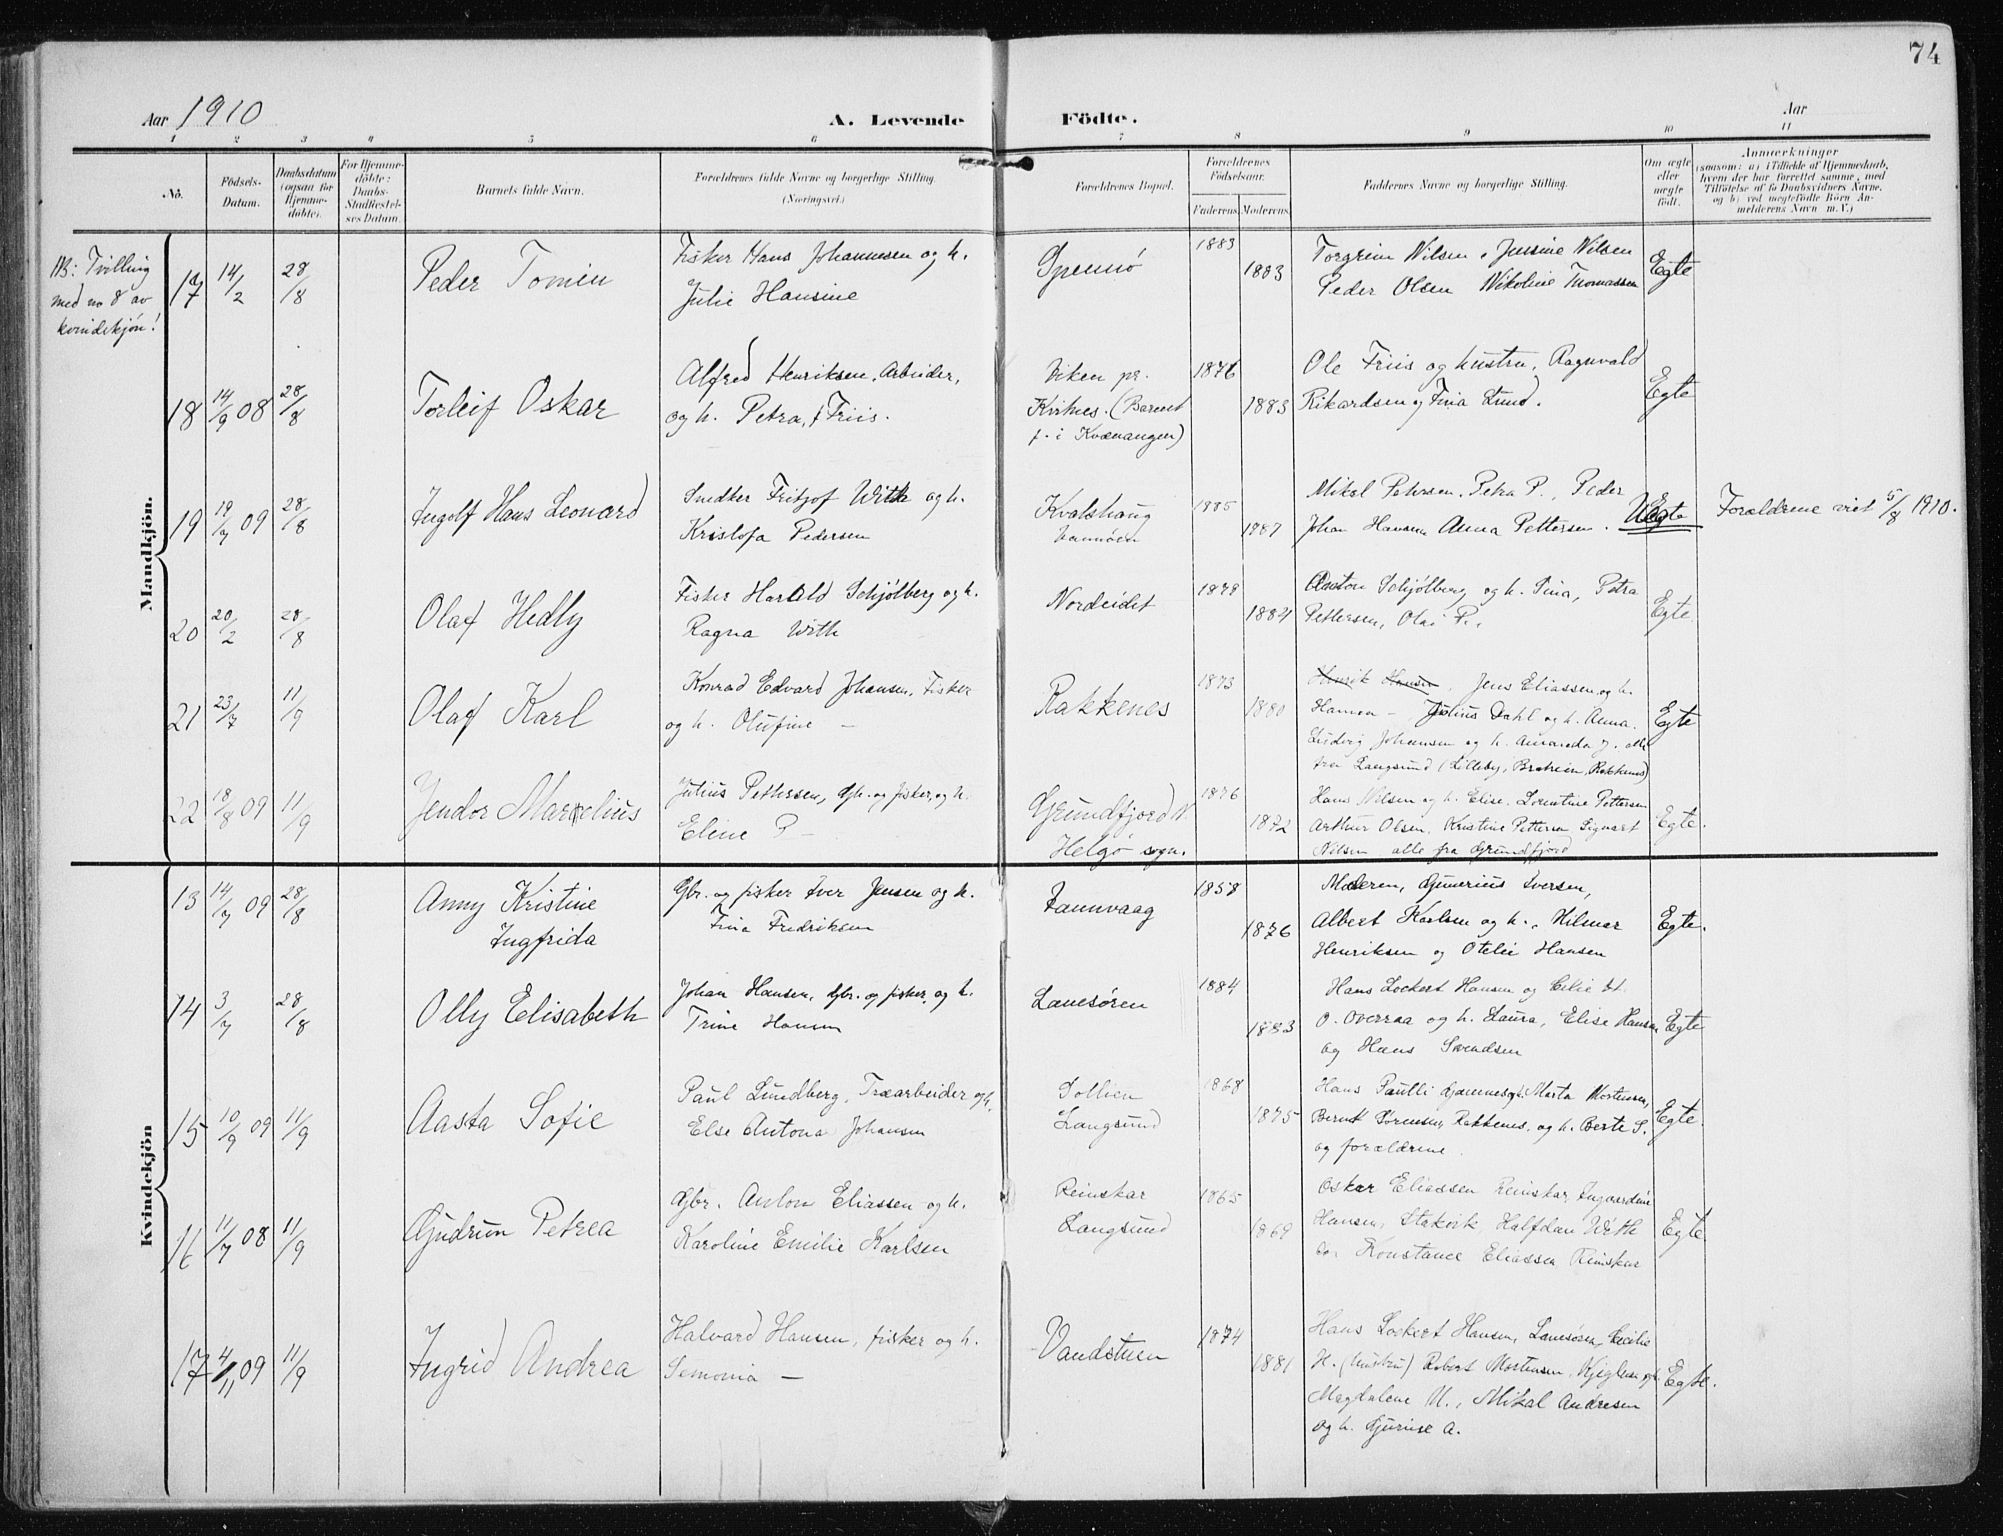 74
Aar 1910
A. Levende Födte.
Aar
1 2 3 4 5 6 7 8 9 10 11
No.
Födsels-Datum.
Daabsdatum (ogsaa for Hjemmedöbte).
For Hjemmedöbte: Daabs-Stadfæstelses Datum.
Barnets fulde Navn.
Forældrenes fulde Navne og borgerlige Stilling. (Næringsvei.)
Forældrenes Bopæl.
Forældrenes Födselsaar.
Faderens. Moderens.
Faddernes Navne og borgerlige Stilling.
Om ægte eller uægte födt.
Anmærkninger
(saasom: a) i Tilfælde af Hjemmedaab, hvem der har forrettet samme, med Tilföielse af to Daabsvidners Navne, og b) ved uegtefödte Börn Anmelderens Navn m. V.)
Mandkjön.
NB: Tvilling
med no 8 av
kvindekjön!
17 14/2 28/8 Peder Tomin
Fisker Hans Johannesen og h.
Julie Hansine
Spensnö
1883 1883
Torgrim Nilsen, Jensine Nilsen
Peder Olsen Nikoline Thomassen
Egte
18 14/9 08 28/8 Torleif Oskar
Alfred Henriksen, Arbeider,
og h. Petra, f. Friis.
Viken pr.
Kvitnes. (Barnet
f. i Kvænangen)
1876 1883
Ole Friis og hustru, Ragnvald
Rikardsen og Fina Lund.
Egte
19 19/7 09 28/8 Ingolf Hans Leonard
Snedker Fritjof With og h.
Kristofa Pedersen
Kvalshaug
Vannöen
1885 1887
Mikal Petersen, Petra P., Peder
Johan Hansen Anna Pettersen.
Uegte
Forældrene viet 5/8 1910.
20 20/2 28/8 Olaf Hedly
Fisker Harald Schjölberg og h.
Ragna With
Nordeidet
1879 1884
Anton Schjölberg og h. Tina, Petra
Pettersen, Olai P.
Egte
21 23/7 11/9 Olaf Karl
Konrad Edvard Johansen, Fisker
og h. Olufine —
Rakkenes
1873 1880
Henrik Hansen, Jens Eliassen og h.
Hanna — Julius Dahl og h. Anna.
Ludvig Johansen og h. Amanda J. alle
fra Langsund (Lilleby, Bratrein, Rakkenes)
Egte
22 18/8 09 11/9 Jendor Marselius
Julius Pettersen, Gbr. og fisker, og h.
Eline P —
Grundfjord N.
Helgö sogn.
1876 1872
Hans Nilsen og h. Elise. Lorentine Pettersen
Arthur Olsen, Kristine Pettersen Sigvart
Nilsen alle fra Grundfjord
Egte.
Kvindekjön
13 14/7 09 28/8 Anny Kristine
Ingfrida
Gbr. og fisker Iver Jensen og h.
Fina Fredriksen
Fannvaag
1858 1876
Moderen, Gunerius Iversen,
Albert Karlsen og h., Hilmar
Henriksen og Otelie Hansen
Egte.
14 3/7 28/8 Olly Elisabeth
Johan Hansen, Gbr. og fisker, og h.
Trine Hansen
Lanesören
1884 1883
Hans Lockert Hansen og Cilie H.
O. Overraa og h. Laura, Elise Hansen
og Hans Svendsen
Egte
15 10/9 09 11/9 Aasta Sofie
Paul Lundberg, Træarbeider og h.
Else Antona Johansen
Sollien
Langsund
1868 1875
Hans Paulli Hannes og h. Marta Mortensen,
Bernt Sörensen, Rakkenes, og h. Berte S.
og forældrene.
Egte.
16 11/7 08 11/9 Gudrun Petrea
Gbr. Anton Eliassen og h.
Karoline Emilie Karlsen
Reinskar
Langsund
1865 1869
Oskar Eliassen Reinskar, Ingvardine
Hansen, Stakvik Halfdan With
og Konstance Eliassen Reinskar
Egte
17 4/11 09 11/9 Ingrid Andrea
Halvard Hansen, fisker og h.
Semonia —
Vandstuen
1874 1881
Hans Lockert Hansen, Lanesören, Cecilie
H. (hustru) Robert Mortensen,
Magdalene M., Mikal Andresen
og h. Gjurine A.
Egte.